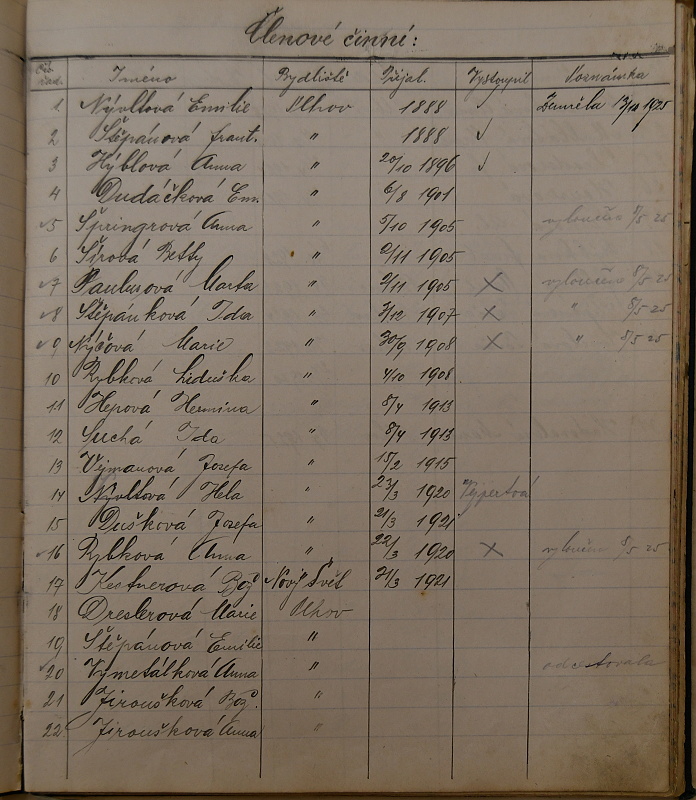 Členové činní:
Čís. řad. Jméno Bydliště Přijal. Vystoupil Poznámka
1 Nývltová Emilie Vlhov 1888 ✓ Zemřela 13/10 1925
2 Štěpánová Frant. " 1888 ✓
3 Hýblová Anna " 20/10 1896 ✓
4 Dudáčková Em. " 6/8 1901
✓5 Špringrová Anna " 5/10 1905 vyloučena 8/5 25
6 Šírová Betty " 2/11 1905
✓7 Paulusová Marta " 2/11 1905 × vyloučena 8/5 25
✓8 Štěpánková Ida " 3/12 1907 × " 8/5 25
✓9 Nýčová Marie " 30/9 1908 × " 8/5 25
10 Rybková Liduška " 4/10 1908
11 Hepová Hermina " 8/4 1913
12 Suchá Ida " 8/4 1913
13 Vejmanová Josefa " 15/2 1915
14 Nývltová Hela " 23/3 1920 Vejpertová
15 Dušková Josefa " 21/3 1921
✓16 Rybková Anna " 22/3 1920 × vyloučena 8/5 25
17 Kestnerova Bož. Nový Svět 21/3 1921
18 Dreslerová Marie Vlhov
19 Štěpánová Emilie "
✓20 Vymetálková Anna " odcestovala
21 Jiroušková Bož. "
22 Jiroušková Anna "